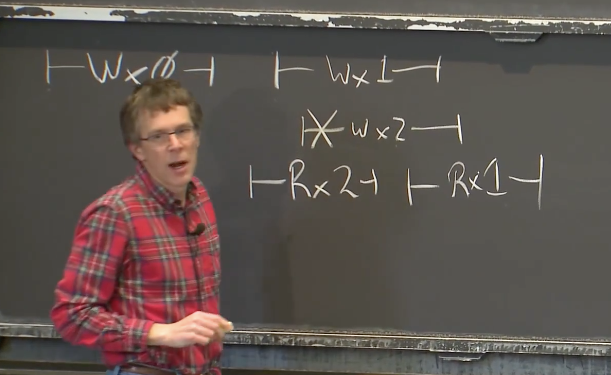 |-Wx0-| |-Wx1-|
|-Wx2-|
|-Rx2-| |-Rx1-|